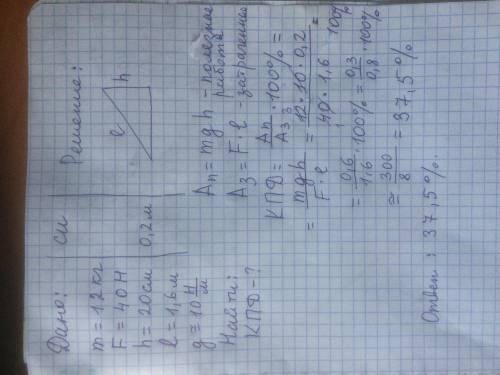 Дано:
m = 12 кг
F = 40 Н
h = 20 см
l = 1,6 м
g = 10 Н/м
Найти:
КПД - ?
СИ
0,2 м
Решение:
l
h
Aп = mgh - полезная работа
Aз = F · l затраченная
КПД = Aп/Aз · 100% =
= mgh/F · l = 12 · 10 · 0,2/40 · 1,6 · 100% =
3
1
= 0,6/1,6 · 100% = 0,3/0,8 · 100%
= 300/8 = 37,5%
Ответ: 37,5%.